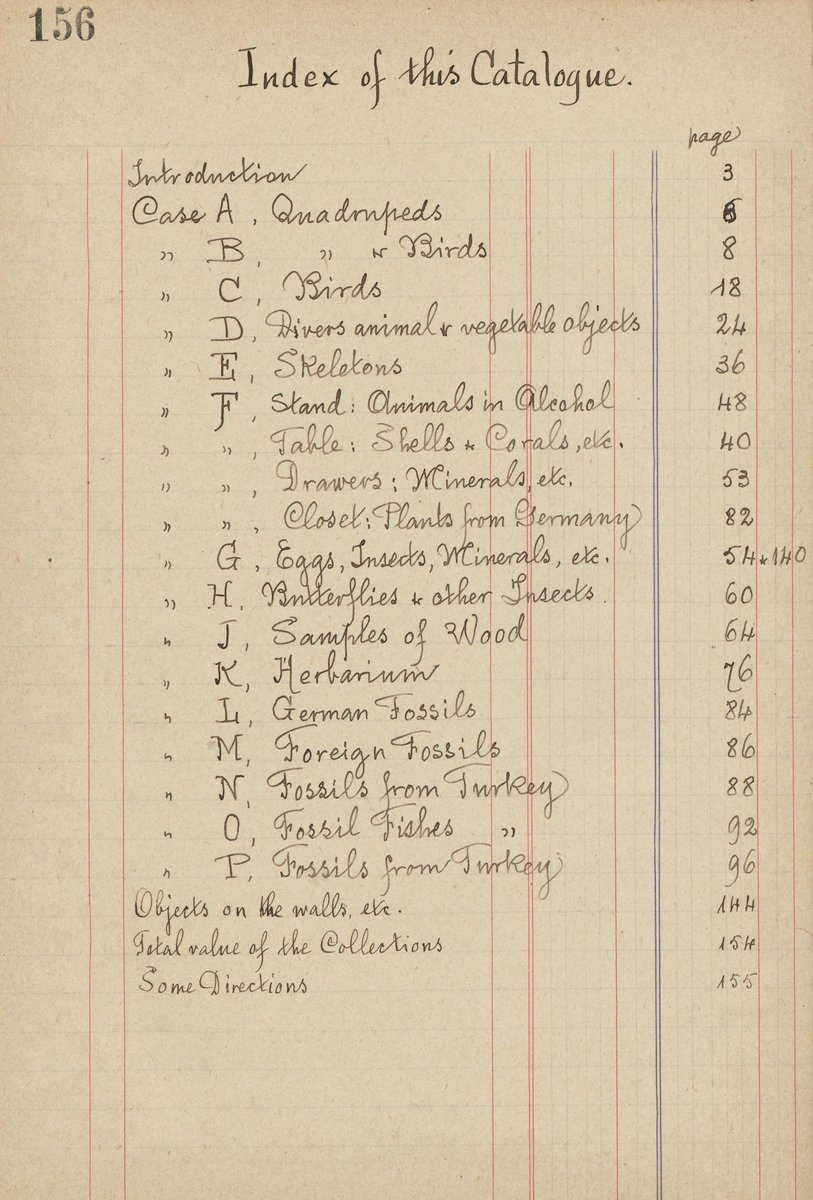 156
Index of this Catalogue.
page
Introduction 3
Case A, Quadrupeds 6
„ B, „ & Birds 8
„ C, Birds 18
„ D, Divers animal & vegetable objects 24
„ E, Skeletons 36
„ F, Stand: Animals in Alcohol 48
„ „, Table: Shells & Corals, etc. 40
„ „, Drawers: Minerals, etc. 53
„ „, Closet: Plants from Germany 82
„ G, Eggs, Insects, Minerals, etc. 54 & 140
„ H, Butterflies & other Insects. 60
„ J, Samples of Wood 64
„ K, Herbarium 76
„ L, German Fossils 84
„ M, Foreign Fossils 86
„ N, Fossils from Turkey 88
„ O, Fossil Fishes „ 92
„ P, Fossils from Turkey 96
Objects on the walls, etc. 144
Total value of the Collections 154
Some Directions 155